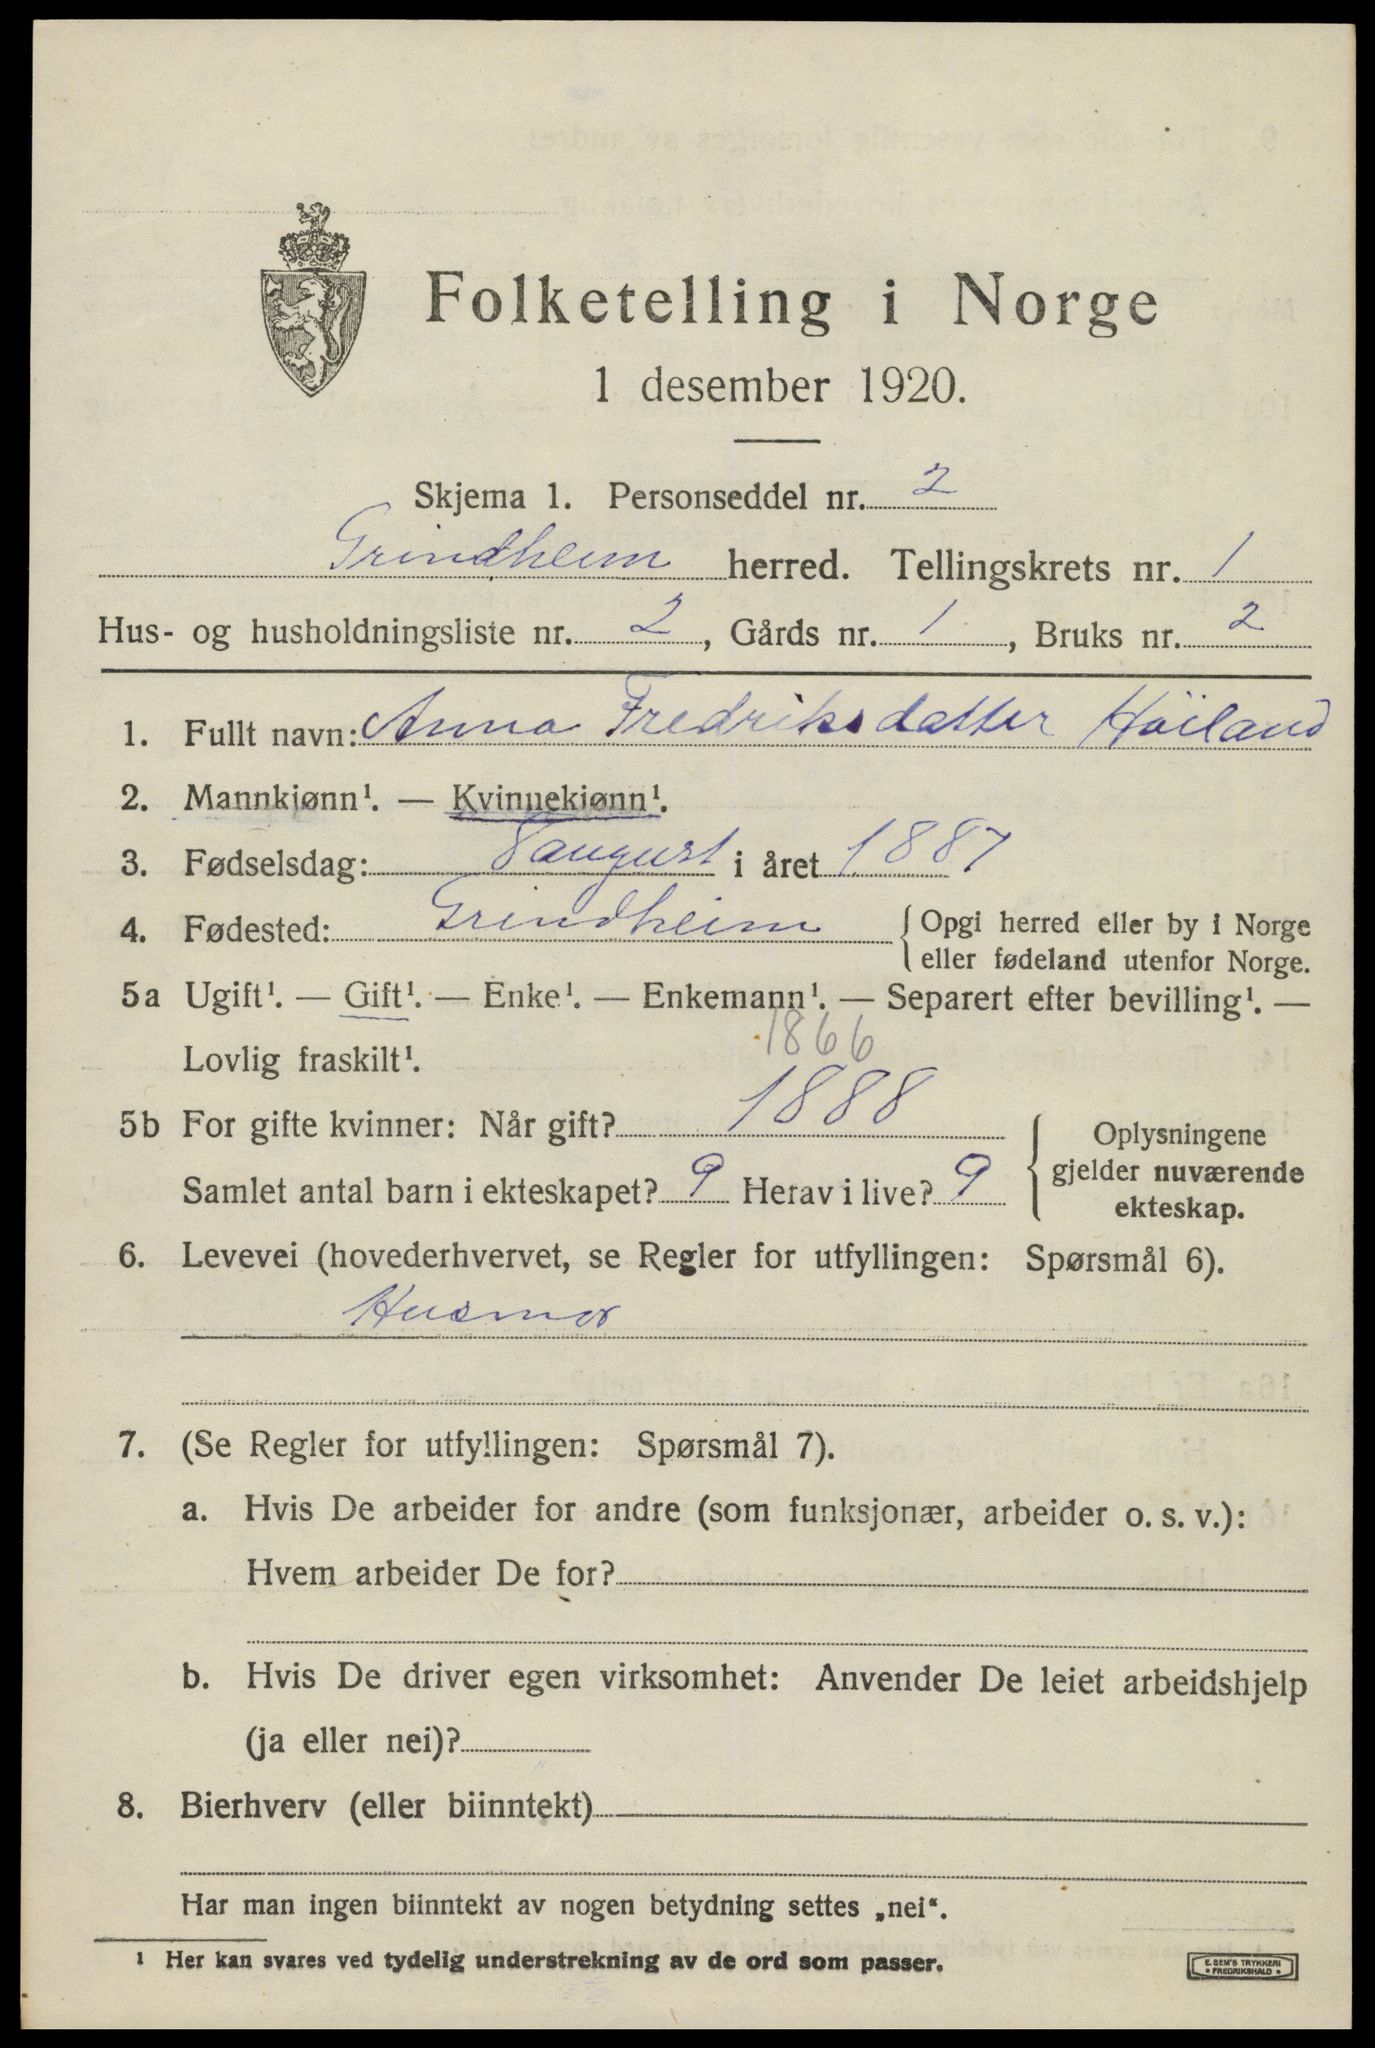 Folketelling i Norge
1 desember 1920.
Skjema 1. Personseddel nr. 2
Grindheim herred. Tellingskrets nr. 1
Hus- og husholdningsliste nr. 2, Gårds nr. 1, Bruks nr. 2
1. Fullt navn: Anna Fredriksdatter Høiland
2. Mannkjønn¹. — Kvinnekjønn¹.
3. Fødselsdag: 8 august i året 1887
4. Fødested: Grindheim { Opgi herred eller by i Norge
eller fødeland utenfor Norge.
5a Ugift¹. — Gift¹. — Enke¹. — Enkemann¹. — Separert efter bevilling¹. —
Lovlig fraskilt¹.
1866
5b For gifte kvinner: Når gift? 1888
Samlet antal barn i ekteskapet? 9 Herav i live? 9
{ Oplysningene
gjelder nuværende
ekteskap.
6. Levevei (hovederhvervet, se Regler for utfyllingen: Spørsmål 6).
Husmor
7. (Se Regler for utfyllingen: Spørsmål 7).
a. Hvis De arbeider for andre (som funksjonær, arbeider o. s. v.):
Hvem arbeider De for?
b. Hvis De driver egen virksomhet: Anvender De leiet arbeidshjelp
(ja eller nei)?
8. Bierhverv (eller biinntekt)
Har man ingen biinntekt av nogen betydning settes „nei“.
¹ Her kan svares ved tydelig understrekning av de ord som passer.
E. SEM'S TRYKKERI
• FREDRIKSHALD •